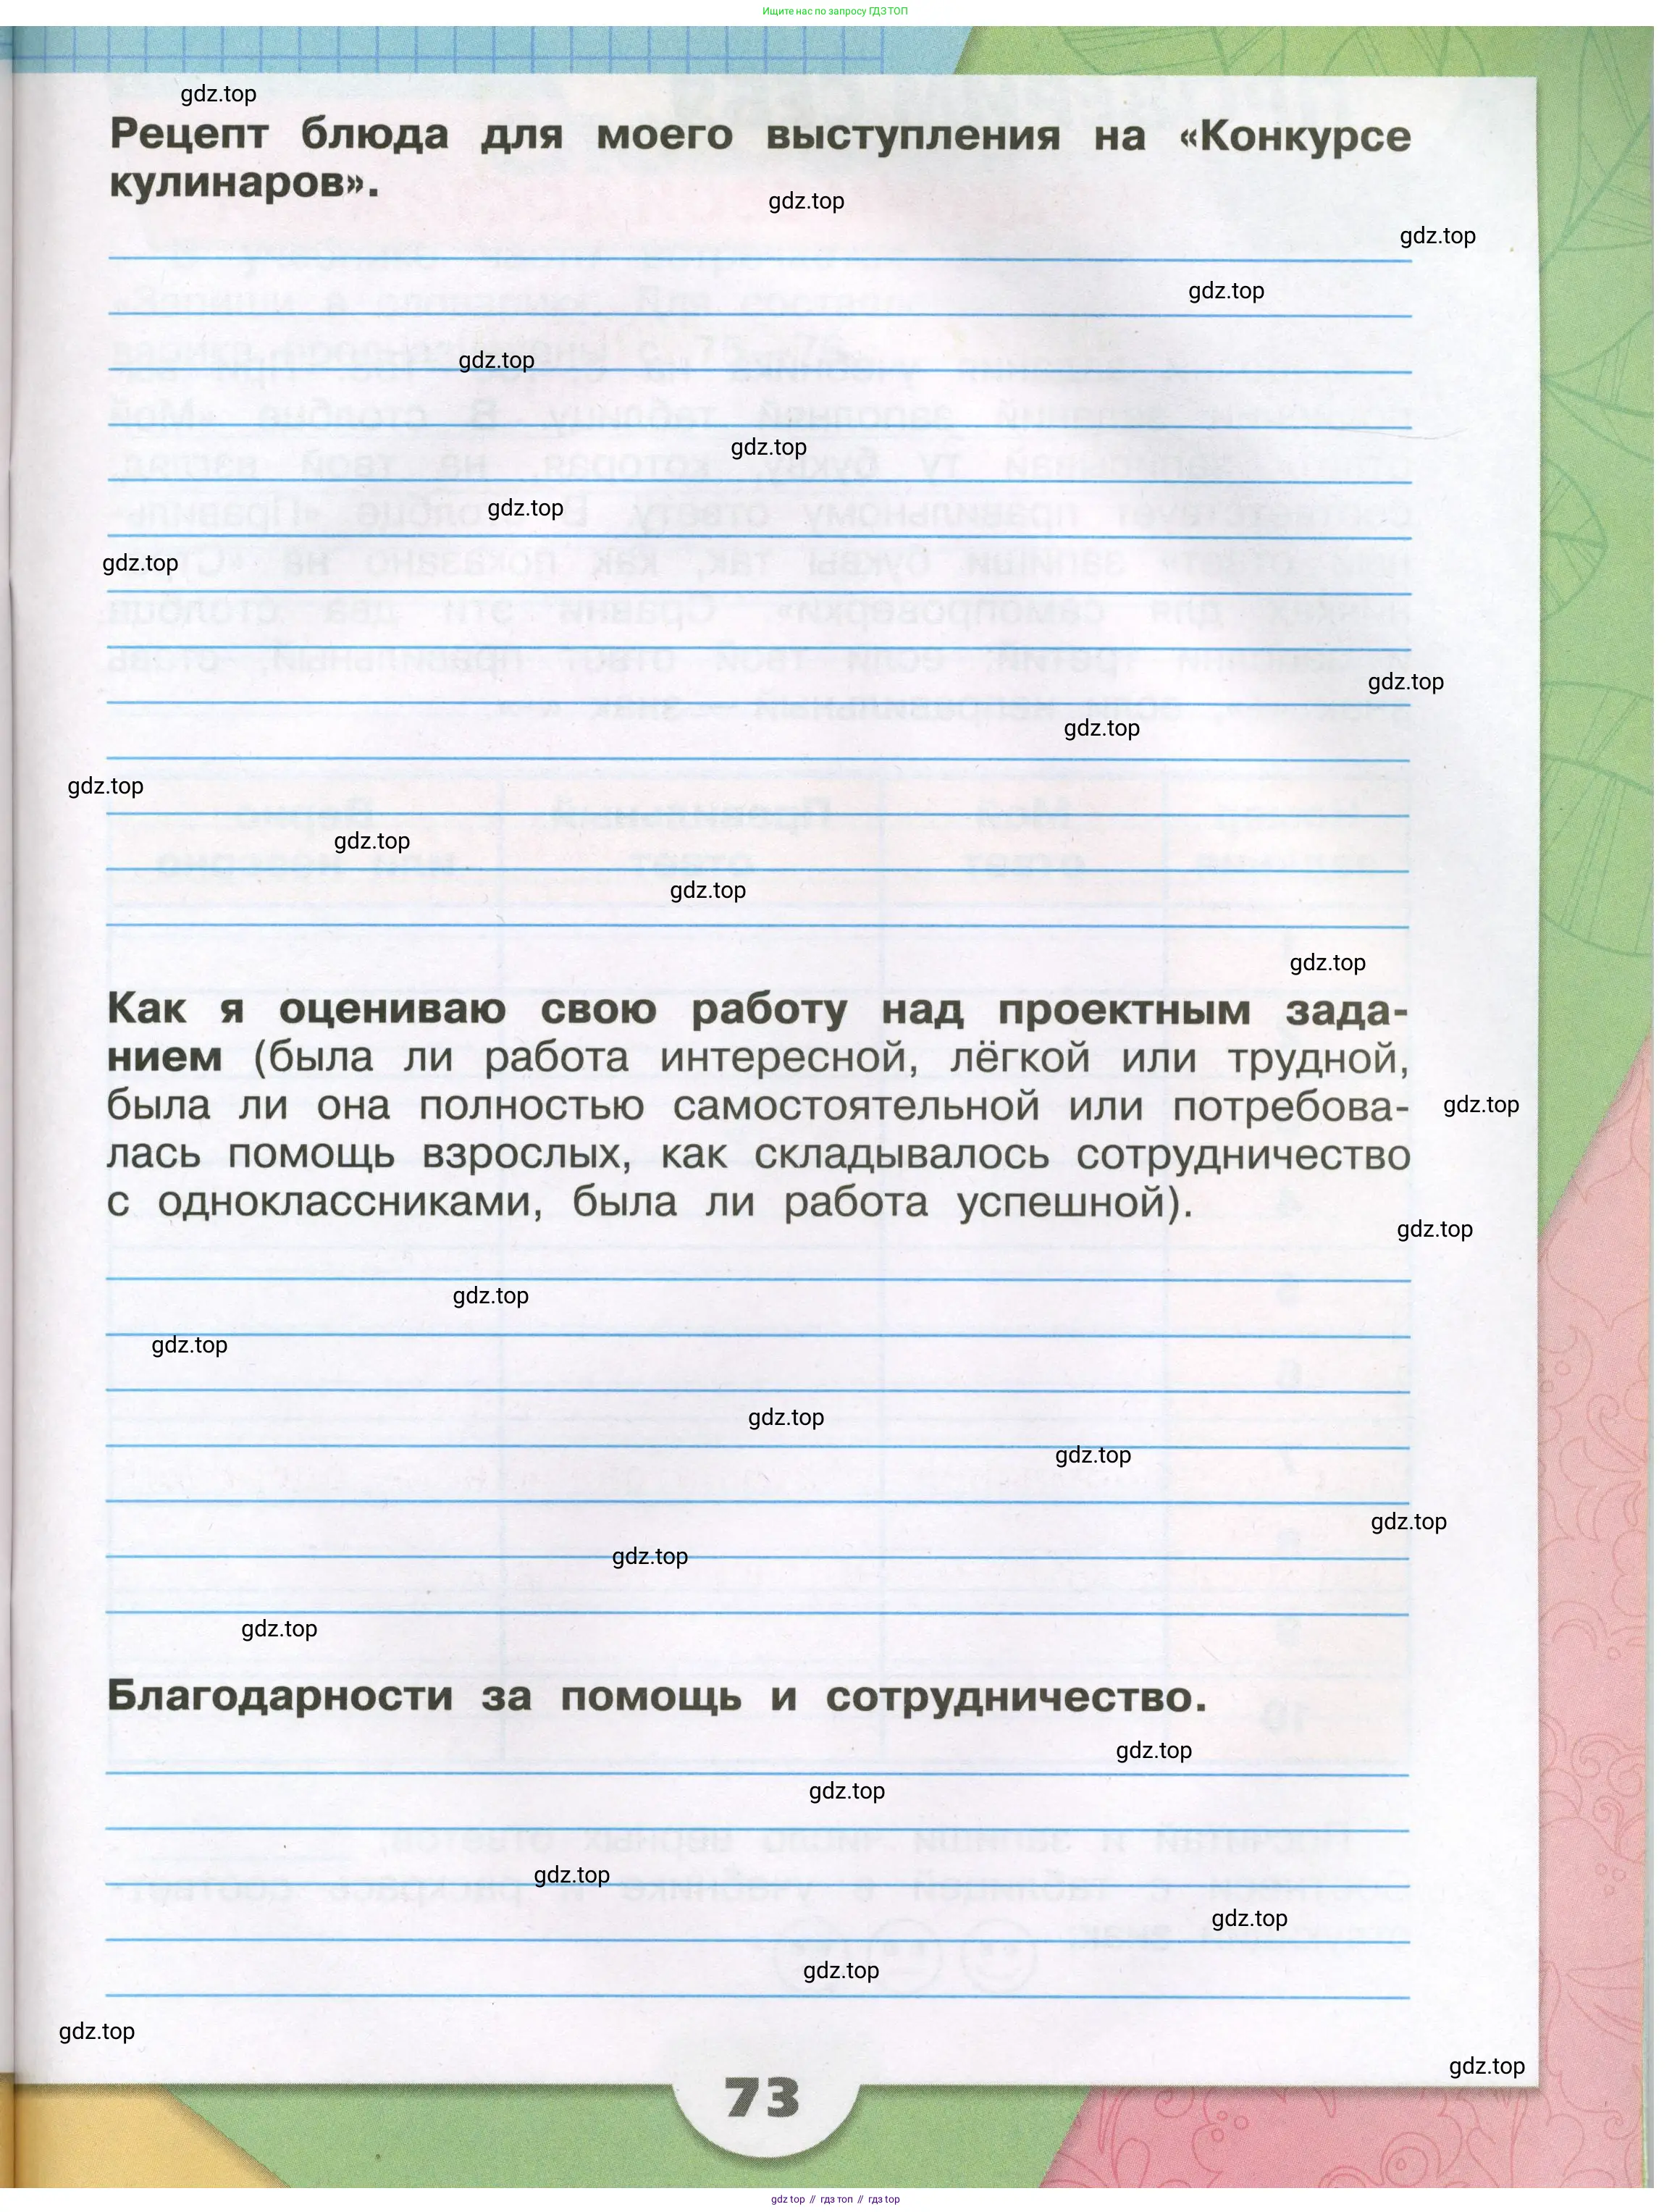 Ищите нас по запросу ГДЗ ТОП
gdz.top
Рецепт блюда для моего выступления на «Конкурсе
кулинаров».
gdz.top
gdz.top
gdz.top
gdz.top
gdz.top
gdz.top
gdz.top
gdz.top
gdz.top
gdz.top
gdz.top
gdz.top
gdz.top
Как я оцениваю свою работу над проектным зада-
нием (была ли работа интересной, лёгкой или трудной,
была ли она полностью самостоятельной или потребова-
gdz.top
лась помощь взрослых, как складывалось сотрудничество
с одноклассниками, была ли работа успешной).
gdz.top
gdz.top
gdz.top
gdz.top
gdz.top
gdz.top
gdz.top
gdz.top
Благодарности за помощь и сотрудничество.
gdz.top
gdz.top
gdz.top
gdz.top
gdz.top
gdz.top
gdz.top
73
gdz top // гдз топ // гдз top